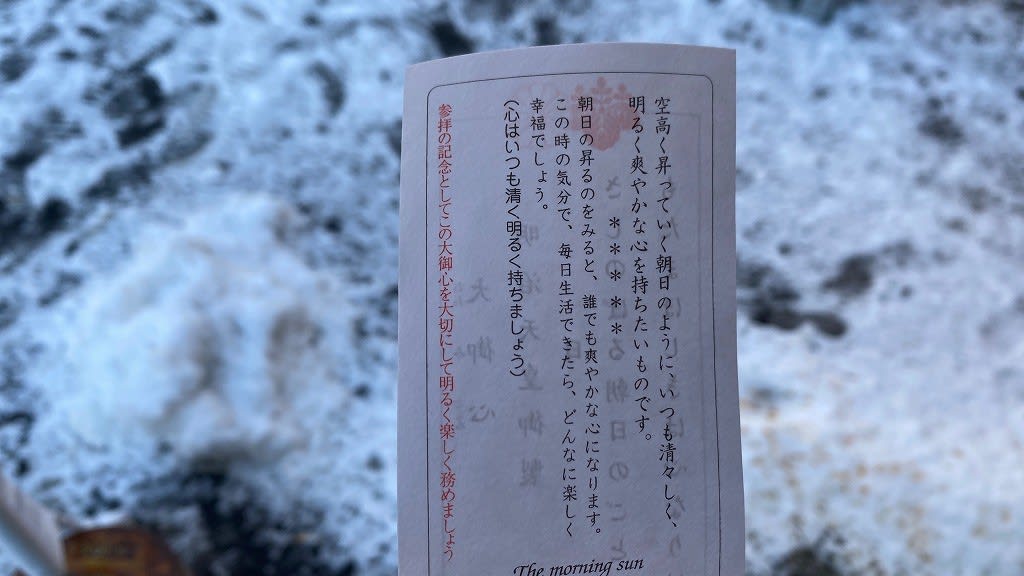 空高く昇っていく朝日のように、いつも清々しく、
明るく爽やかな心を持ちたいものです。
＊＊＊＊＊
朝日の昇るのをみると、誰でも爽やかな心になります。
この時の気分で、毎日生活できたら、どんなに楽しく
幸福でしょう。
(心はいつも清く明るく持ちましょう)
参拝の記念としてこの大御心を大切にして明るく楽しく務めましょう
The morning sun